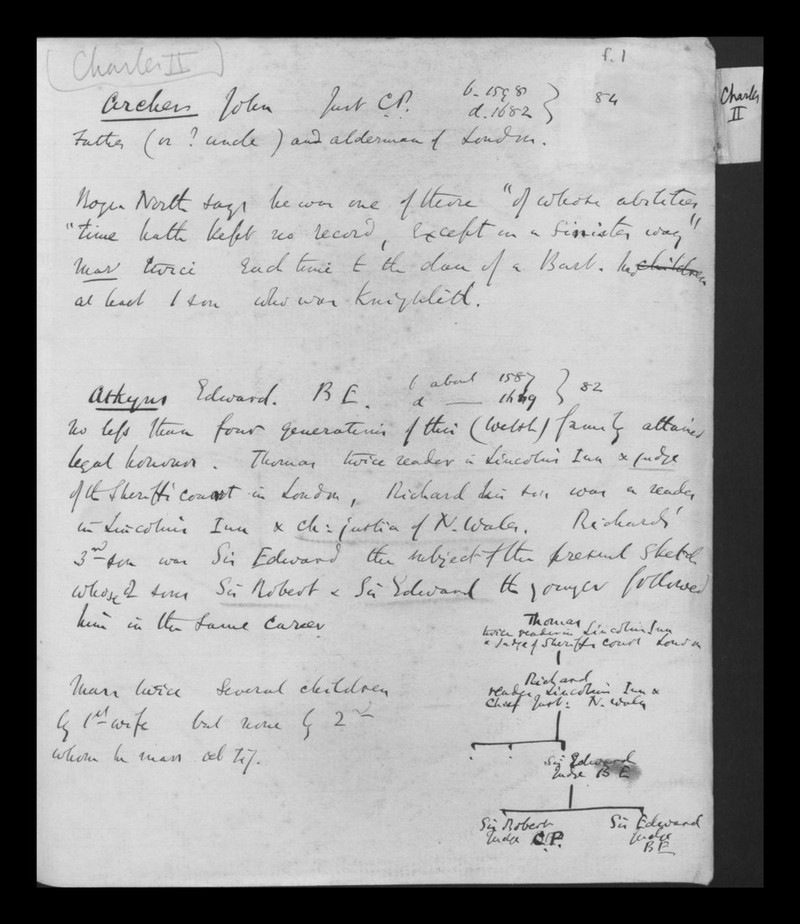 (Charles II)
f.1
Charles
II
Archer John Just C.P. b. 1598 } 84
d. 1682
Father (or ? uncle) and alderman of London.
Roger North says he was one of those "of whose abilities
"time hath kept no record, except in a sinister way"
Mar twice Each time to the dau of a Bart. had children
at least 1 son who was Knighted.
Atkyns Edward. B E. b about 1587 } 82
d — 1669
No less than four generations of this (Welsh) family attained
legal honours. Thomas twice reader in Lincolns Inn & judge
of the Sheriffs court in London, Richard his son was a reader
in Lincolns Inn & ch: justice of N. Wales. Richards'
3rd son was Sir Edward the subject of the present sketch
whose 2 sons Sir Robert & Sir Edward the younger followed
him in the same career
Marr twice several children
by 1st wife but none by 2nd
whom he marr at 71.
Thomas
twice reader in Lincolns Inn
& Judge of Sheriffs Court London
Richard
reader Lincolns Inn &
Chief Just: N. Wales
Sir Edward
Judge B E
Sir Robert
Judge C.P.
Sir Edward
Judge
B E